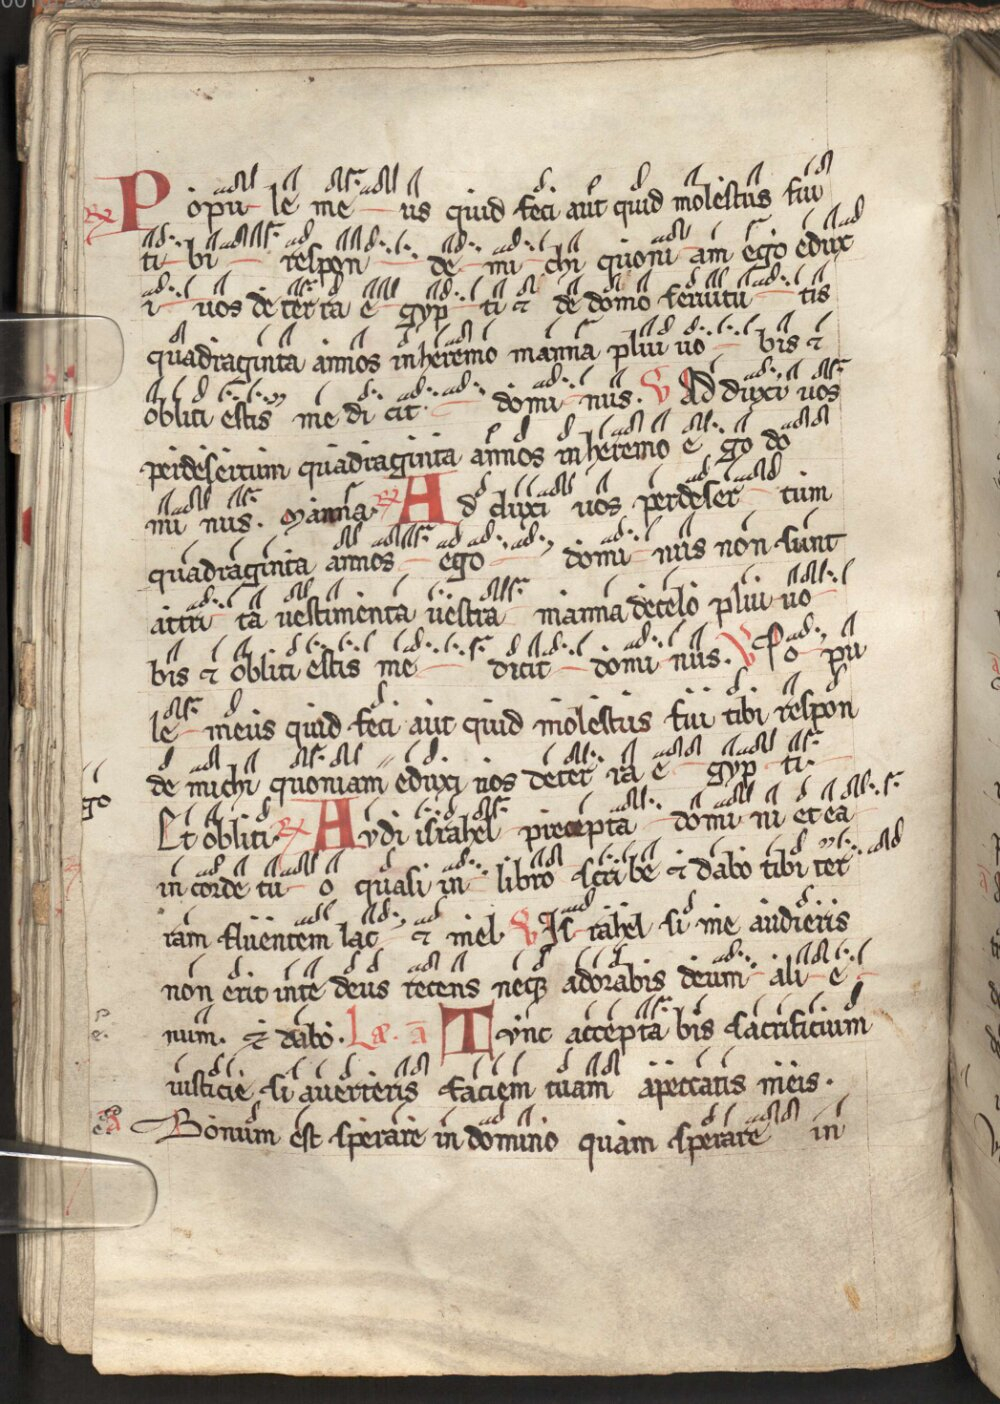 R Popu le me us quid feci aut quid molestus fui
ti bi respon de mi chi quoni am ego edux
i uos de ter ra e gyp ti et de domo seruitu tis
quadraginta annos in heremo manna plui uo bis et
obliti estis me di cit domi nus. V Ad duxi uos
per desertum quadraginta annos in heremo e go do
mi nus. Manna. R Ad duxi uos per deser tum
quadraginta annos ego domi nus non sunt
attri ta uestimenta uestra manna de celo plui uo
bis et obliti estis me dicit domi nus. V Po pu
le meus quid feci aut quid molestus fui tibi respon
de michi quoniam eduxi uos de ter ra e gyp ti.
go
Et obliti. R Audi israhel precepta domi ni et ea
in corde tu o quasi in libro scri be et dabo tibi ter
ram fluentem lac et mel. V Is rahel si me audieris
non erit in te deus recens neq adorabis deum ali e
num. et dabo. L a Tunc acceptabis sacrificium
iusticie si auerteris faciem tuam a peccatis meis.
Bonum est sperare in domino quam sperare in